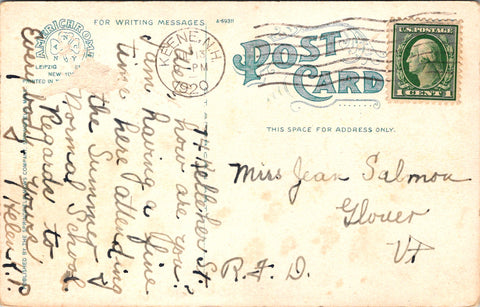 FOR WRITING MESSAGES
A-69311
AMERICHROME
LEIPZIG
NEW YORK
PRINTED IN
POST
CARD
THIS SPACE FOR ADDRESS ONLY.
KEENE, N.H.
PM
1920
U.S. POSTAGE
1 CENT 1
how are you?
I am having a fine
time here attending
the Summer
Normal School
Regards to
Yours
Helen
Miss Jean Salmon
Glover
Vt
R.F.D.